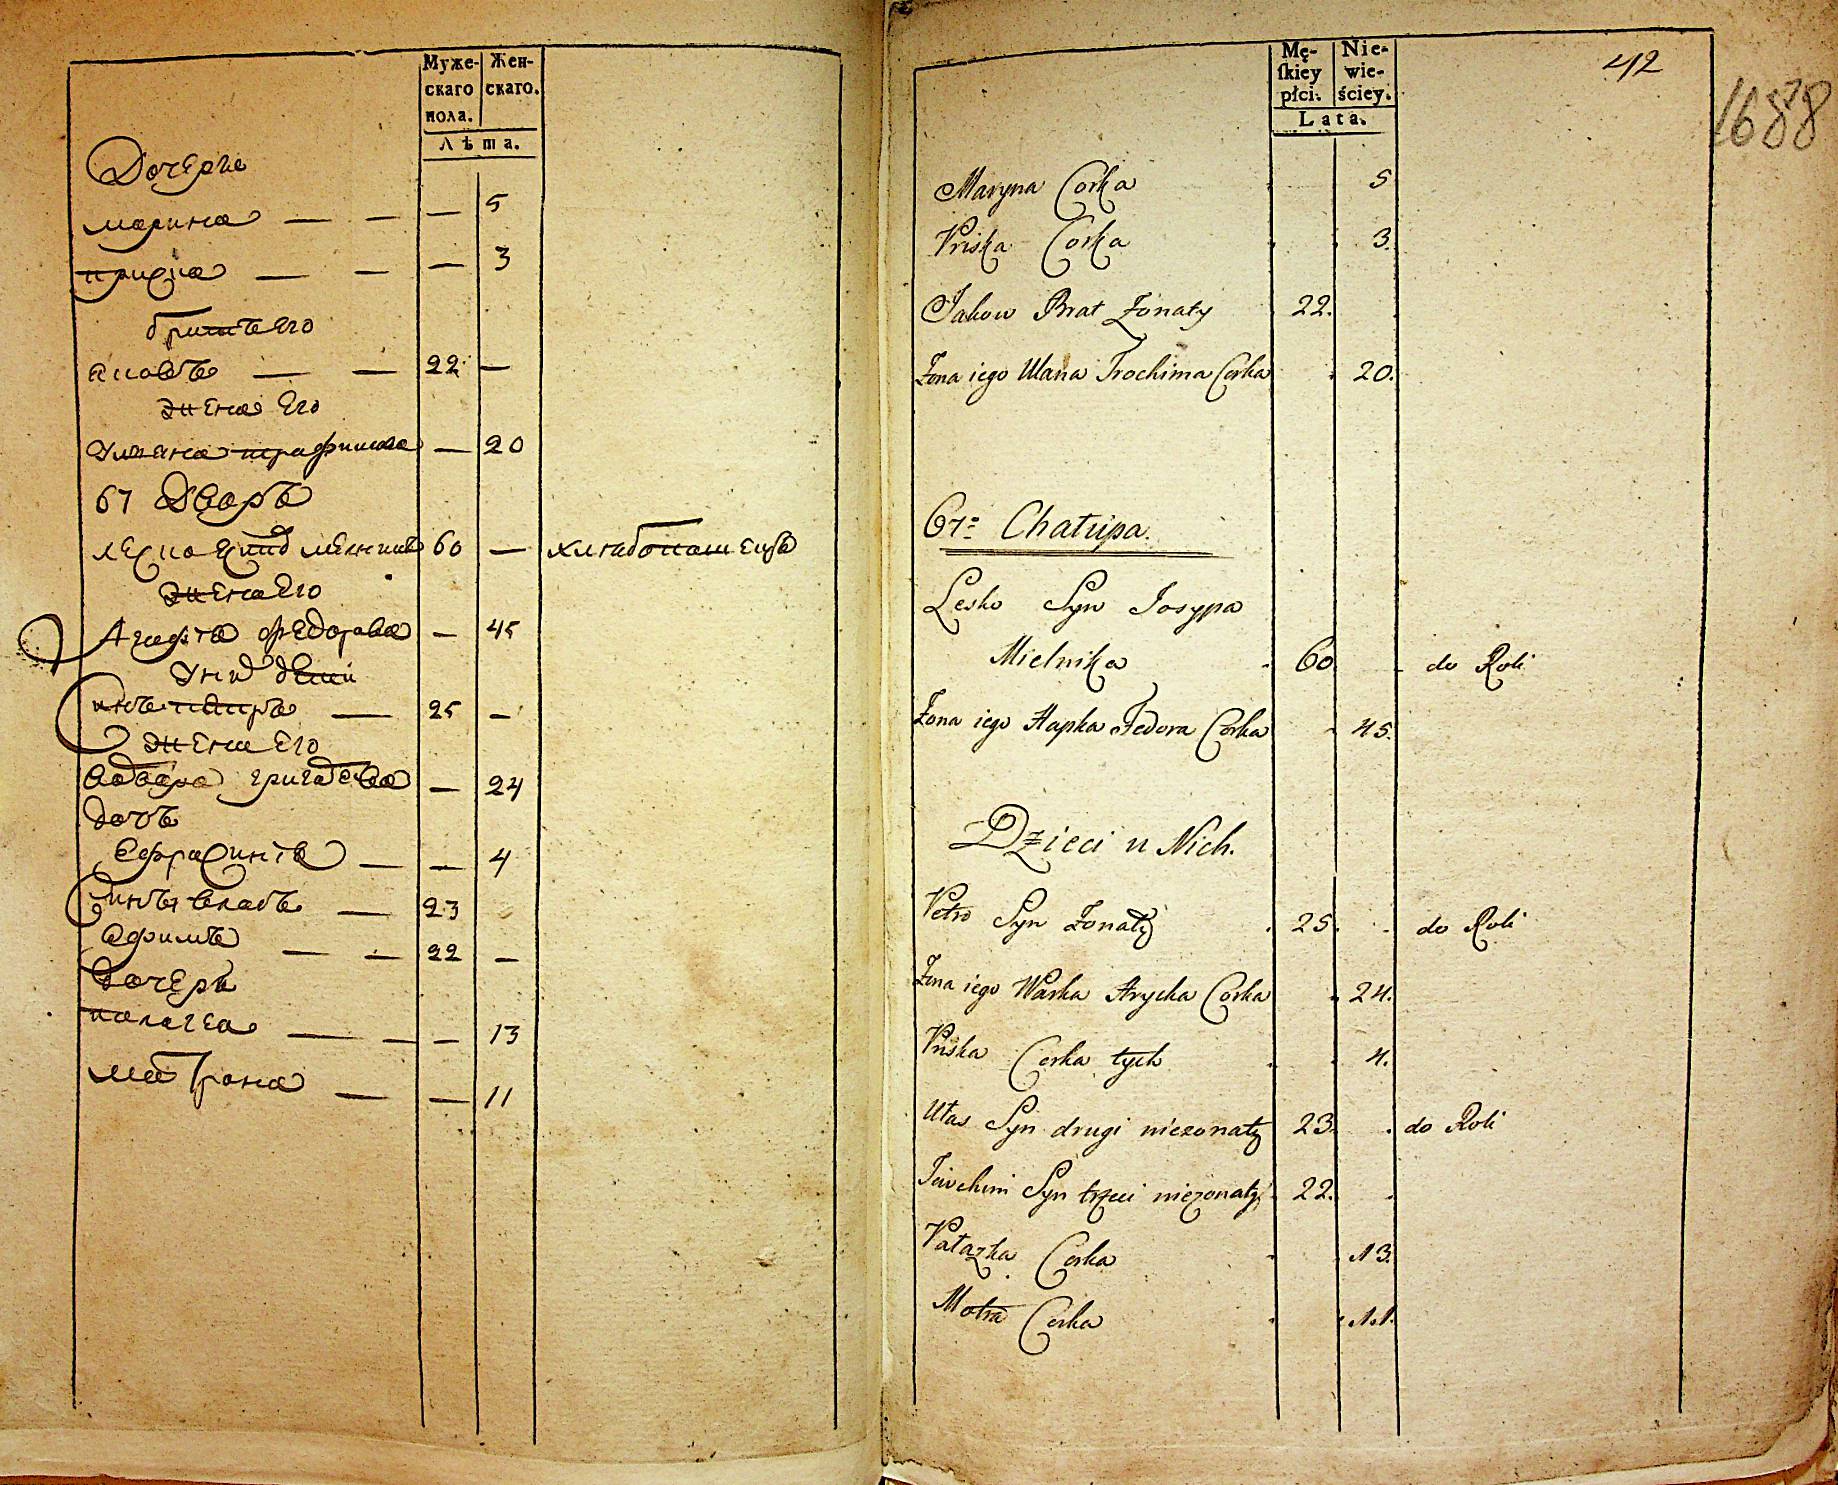 Муже-
скаго
пола.
Жен-
скаго.
Лѣта.
Дочерѣ
марина — — — 5
приска — — — 3
братъ Его
Яковъ — — 22 —
жена Его
Уляна трафимова — 20
67 Дворъ
леско мелник 60 — хлѣбопашецъ
жена Его
Агафія федорова — 45
У них дети
петръ — 25 —
жена Его
варвара — 24
дочь
Ефросинія — — 4
власъ — 23
Ефимъ — — 22 —
Дочери
палагея — — — 13
матрона — — 11
42
1688
Mę-
skiey
płci.
Nie-
wie-
ściey.
Lata.
Maryna Corka 5
Priska Corka 3.
Jakow Brat Żonaty 22.
Żona iego Ulana Trochima Corka 20.
67= Chałupa.
Lesko Syn Josypa
Mielnika 60. do Roli
Żona iego Hapka Fedora Corka 45.
Dzieci u Nich.
Petro Syn Żonaty 25. do Roli
Żona iego Warka Hrycka Corka 24.
Priska Corka tych 4.
Ułas Syn drugi nieżonaty 23. do Roli
Syn trzeci nieżonaty 22.
Pałażka Corka 13.
Motra Corka 11.